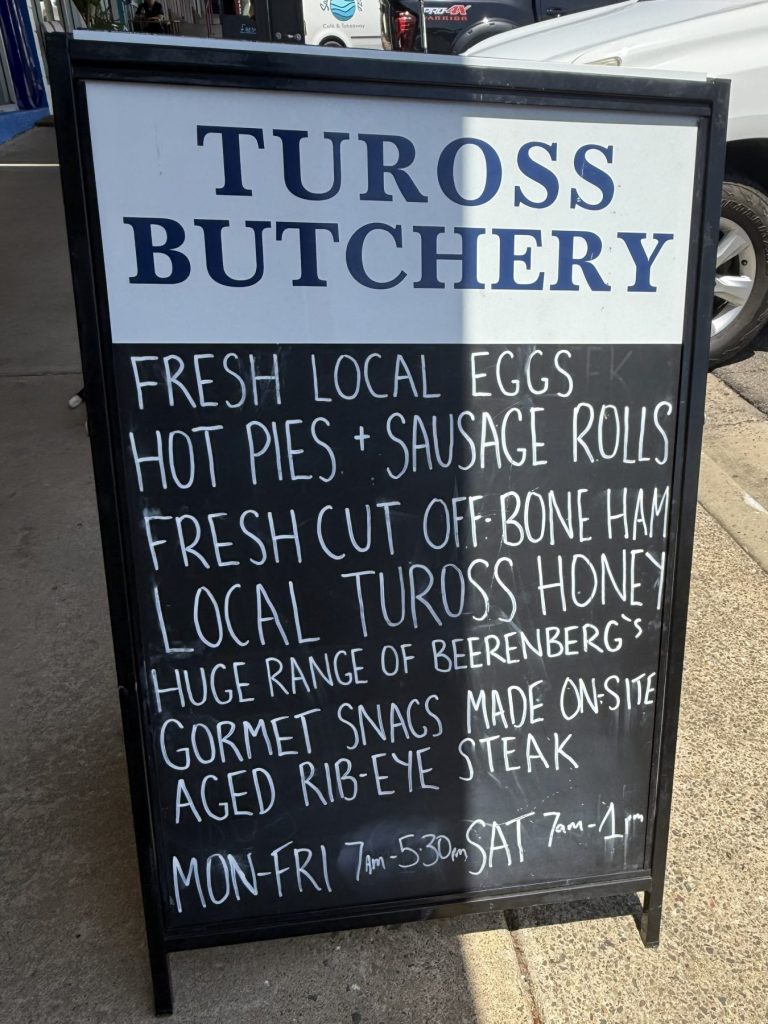 Café & Takeaway
PRO-4X
WARRIOR
TUROSS
BUTCHERY
FRESH LOCAL EGGS
HOT PIES + SAUSAGE ROLLS
FRESH CUT OFF-BONE HAM
LOCAL TUROSS HONEY
HUGE RANGE OF BEERENBERG`s
GORMET SNAGS MADE ON-SITE
AGED RIB-EYE STEAK
MON-FRI 7Am-5:30pm SAT 7am-1pm